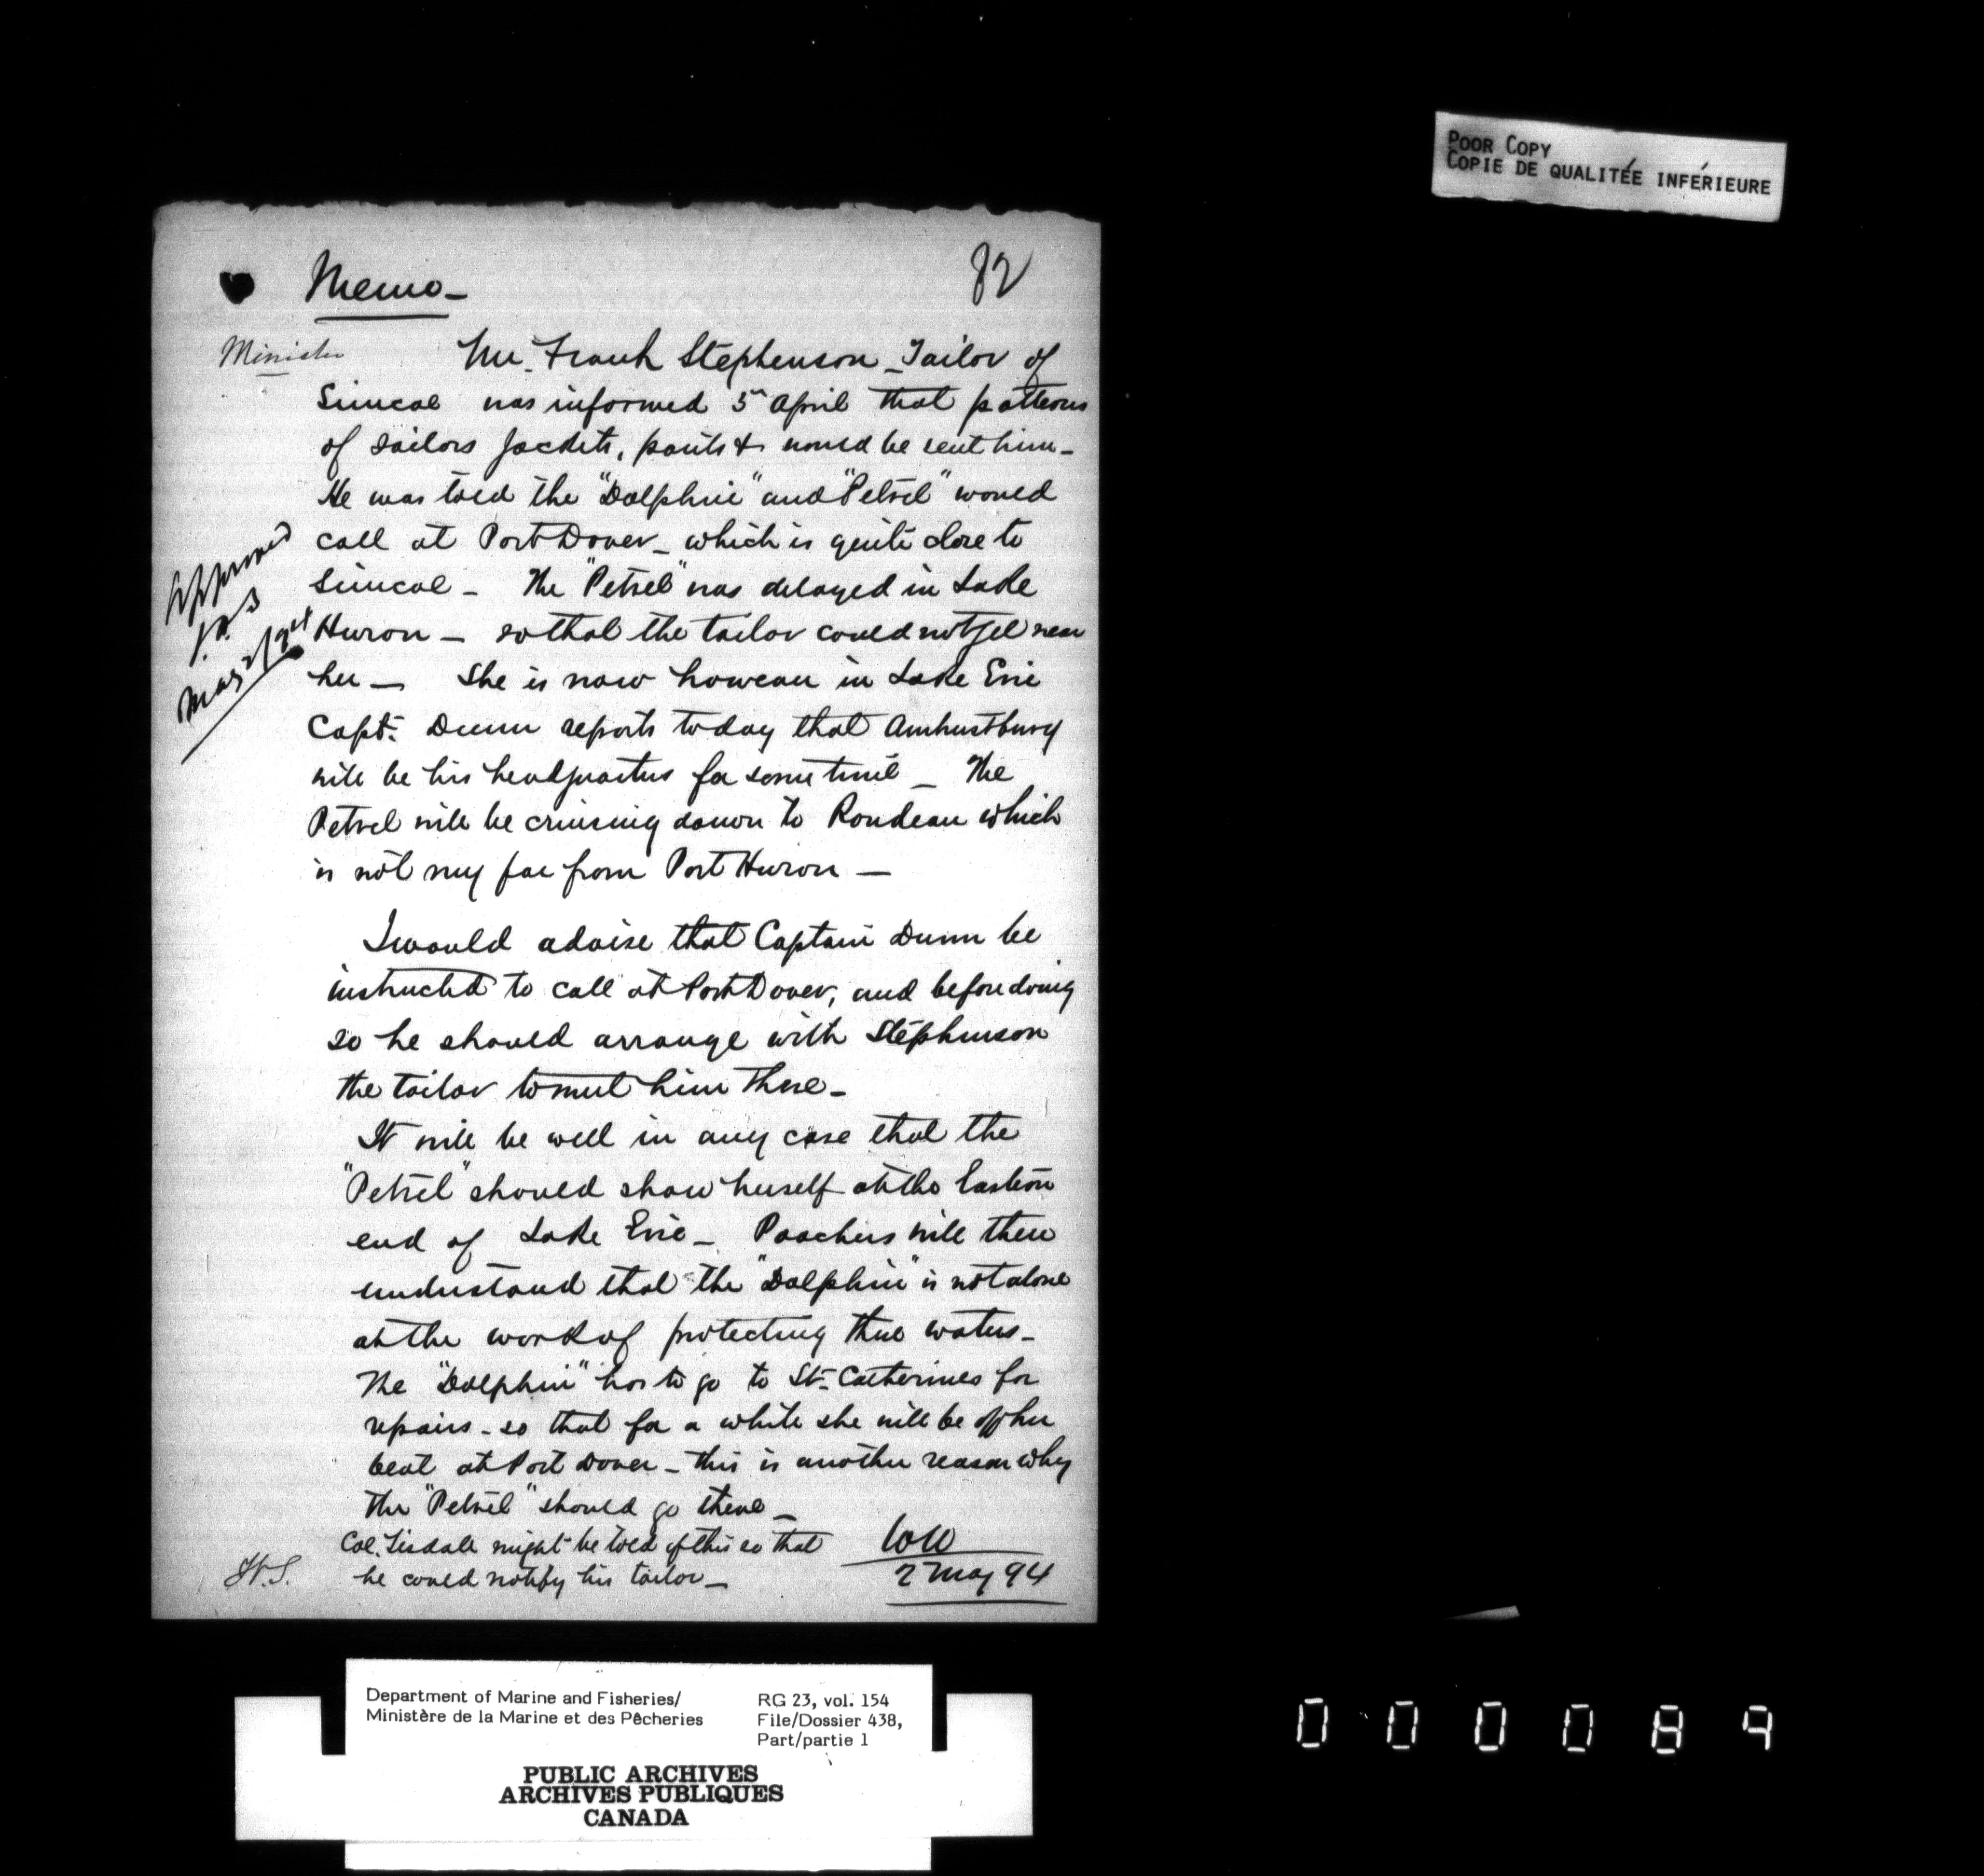 POOR COPY
COPIE DE QUALITÉE INFÉRIEURE
82
Memo —
Minister
Mr. Frank Stephenson – Tailor of
Simcoe was informed 5th April that patterns
of sailors jackets, pants & would be sent him –
He was told the "Dolphin" and "Petrel" would
call at Port Dover – which is quite close to
Simcoe – The "Petrel" was delayed in Lake
Huron – so that the tailor could not get near
her – She is now however in Lake Erie
Capt. Dunn reports today that Amherstburg
will be his headquarters for some time – The
Petrel will be cruising down to Rondeau which
is not very far from Port Huron –
Approved
May 2/94
I would advise that Captain Dunn be
instructed to call at Port Dover, and before doing
so he should arrange with Stephenson
the tailor to meet him there –
It will be well in any case that the
"Petrel" should show herself at the Eastern
end of Lake Erie – Poachers will then
understand that the "Dolphin" is not alone
at the work of protecting these waters –
The "Dolphin" has to go to St. Catherines for
repairs – so that for a while she will be off her
beat at Port Dover – this is another reason why
the "Petrel" should go there –
Col. Tisdale might be told of this so that
he could notify his tailor –
2 May 94
Department of Marine and Fisheries/
Ministère de la Marine et des Pêcheries
RG 23, vol. 154
File/Dossier 438,
Part/partie 1
PUBLIC ARCHIVES
ARCHIVES PUBLIQUES
CANADA
000089